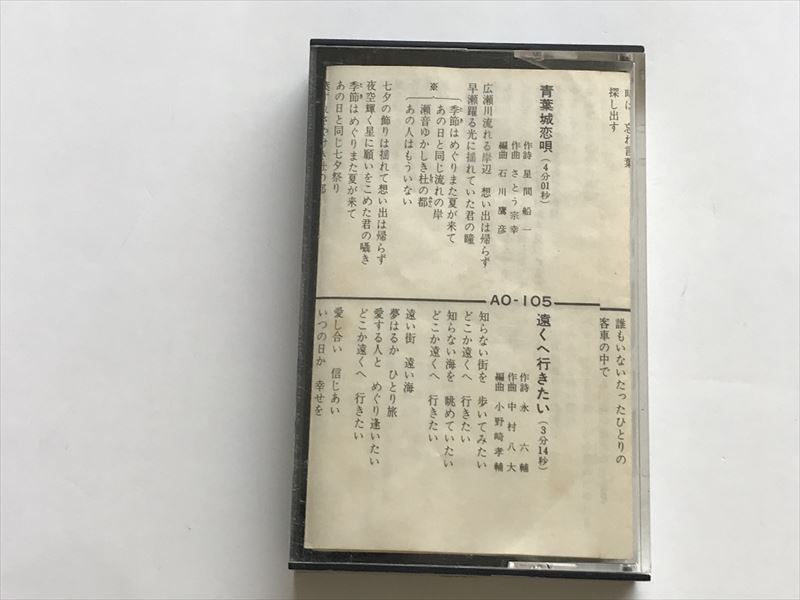 時は 忘れ言葉
探し出す
青葉城恋唄(4分01秒)
作詩 星間船一
作曲 さとう宗幸
編曲 石川鷹彦
広瀬川流れる岸辺 想い出は帰らず
早瀬躍る光に揺れていた君の瞳
※
季節はめぐりまた夏が来て
あの日と同じ流れの岸
瀬音ゆかしき杜の都
あの人はもういない
七夕の飾りは揺れて想い出は帰らず
夜空輝く星に願いをこめた君の囁き
季節はめぐりまた夏が来て
あの日と同じ七夕祭り
AO-105
誰もいないたったひとりの
客車の中で
遠くへ行きたい(3分14秒)
作詩 永六輔
作曲 中村八大
編曲 小野崎孝輔
知らない街を 歩いてみたい
どこか遠くへ 行きたい
知らない海を 眺めていたい
どこか遠くへ 行きたい
遠い街 遠い海
夢はるか ひとり旅
愛する人と めぐり逢いたい
どこか遠くへ 行きたい
愛し合い 信じあい
いつの日か 幸せを